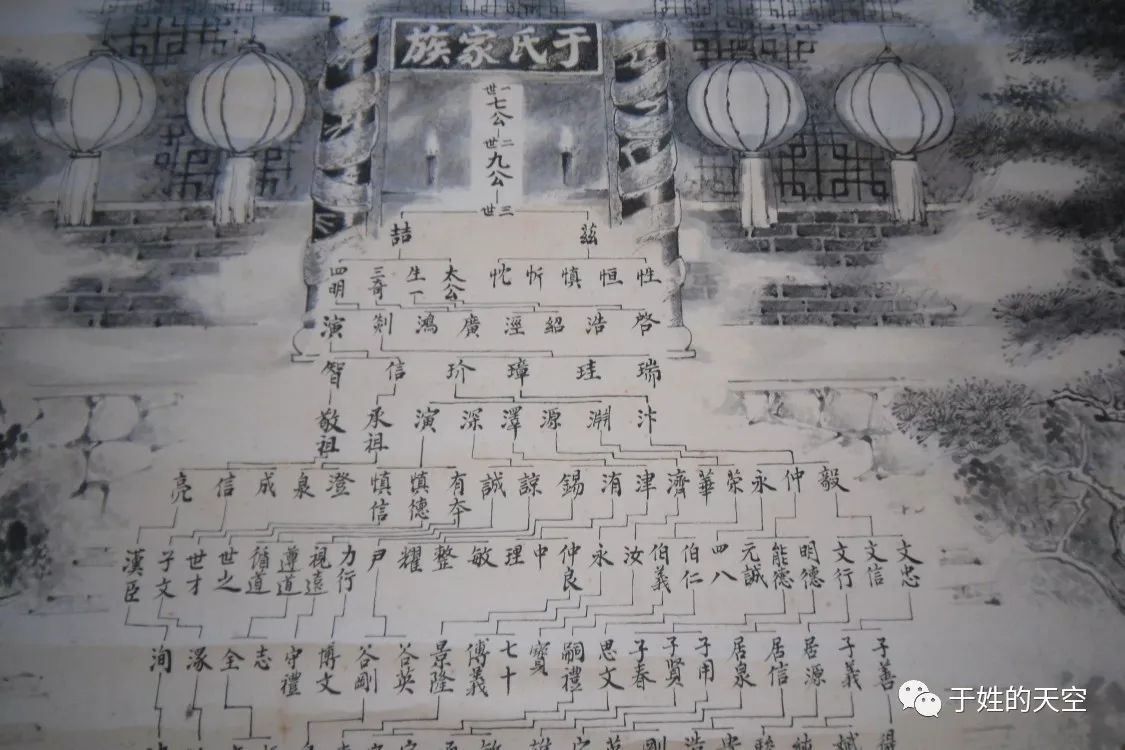 于氏家族
一世
七公
二世
九公
三世
喆 茲
四明 三哥 生一 太公 忱 忻 慎 恒 性
演 剡 鴻 廣 涇 紹 浩 啓
智 信 玠 璋 珪 瑞
敬祖 承祖 演 深 澤 源 淵 汴
亮 信 成 泉 澄 慎信 慎德 有夲 誠 諒 錫 洧 津 濟 華 荣 永 仲 毅
漢臣 子文 世才 世之 循道 遵道 視遠 力行 尹 耀 整 敏 理 中 仲良 永 汝 伯義 伯仁 四八 元誠 能德 明德 文行 文信 文忠
洵 涿 全 志 守禮 博文 谷剛 谷英 景隆 傅義 七十 寳 嗣禮 思文 子春 子賢 子用 居泉 居信 居源 子義 子善
于姓的天空